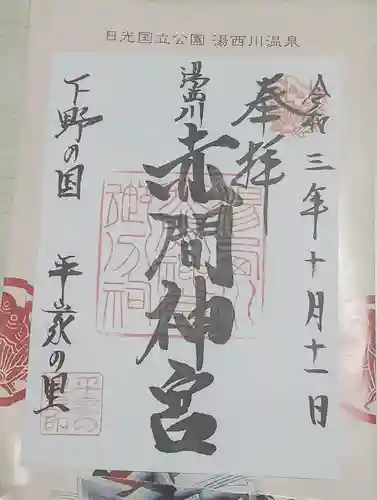 日光国立公園 湯西川温泉
令和三年十月十一日
奉拝
湯西川
赤間神宮
下野の国
平家の里